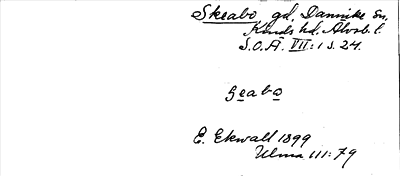 Skeabo, gd, Dannike sn,
Kinds hd. Älvsb. l.
S.O.Ä. VII:1 s. 24.
geabo
E. Ekwall 1899
Ulma 111:79